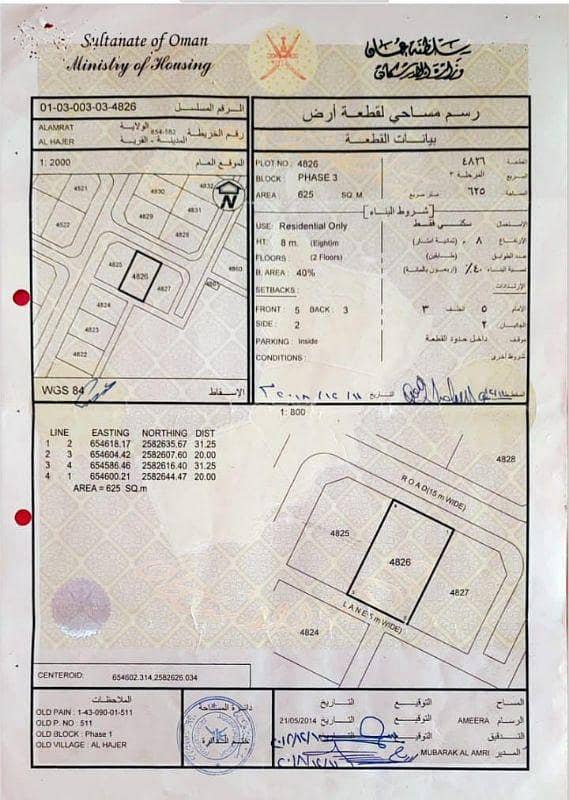 Sultanate of Oman
Ministry of Housing
سلطنة عمان
وزارة الإسكان
01-03-003-03-4826 الرقم المسلسل
ALAMRAT الولاية
654-582 رقم الخريطة
AL HAJER المدينة - القرية
1: 2000 الموقع العام
4521
4522
4830
4832
4831
4829
4828
4825
4826
4827
4824
4823
4822
4860
WGS 84 الإسقاط
رسم مساحي لقطعة أرض
بيانات القطعة
PLOT NO : 4826 ٤٨٢٦ القطعة
BLOCK : PHASE 3 المرحلة ٣ المربع
AREA : 625 SQ. M. متر مربع ٦٢٥ المساحة
شروط البناء
USE: Residential Only سكني فقط الاستعمال
HT: 8 m. (Eight)m ٨ م (ثمانية أمتار) الارتفاع
FLOORS (2 Floors) (طابقين) عدد الطوابق
B. AREA : 40% ٤٠٪ (أربعون بالمائة) نسبة البناء
SETBACKS : الإرتدادات
FRONT : 5 BACK : 3 ٣ الخلف ٥ الأمام
SIDE : 2 ٢ الجانبان
PARKING : Inside داخل حدود القطعة موقف
CONDITIONS : شروط أخرى
التاريخ
1: 800
LINE EASTING NORTHING DIST
1 2 654618.17 2582635.67 31.25
2 3 654604.42 2582607.60 20.00
3 4 654586.46 2582616.40 31.25
4 1 654600.21 2582644.47 20.00
AREA = 625 SQ.m
4828
ROAD(15 m WIDE)
4825
4826
4827
LANE( m WIDE)
4824
CENTEROID: 654602.314,2582626.034
الملاحظات
OLD PAIN : 1-43-090-01-511
OLD P. NO : 511
OLD BLOCK : Phase 1
OLD VILLAGE : AL HAJER
دائرة المساحة
التاريخ التوقيع المساح
21/05/2014 التاريخ التوقيع AMEERA الرسام
التوقيع التدقيق
MUBARAK AL AMRI المدير